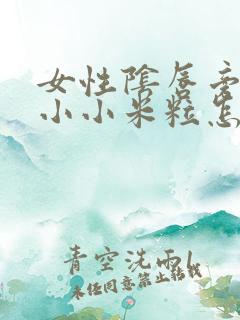 女性阴唇旁
小小米粒怎
青空洗雨
未经同意禁止转载